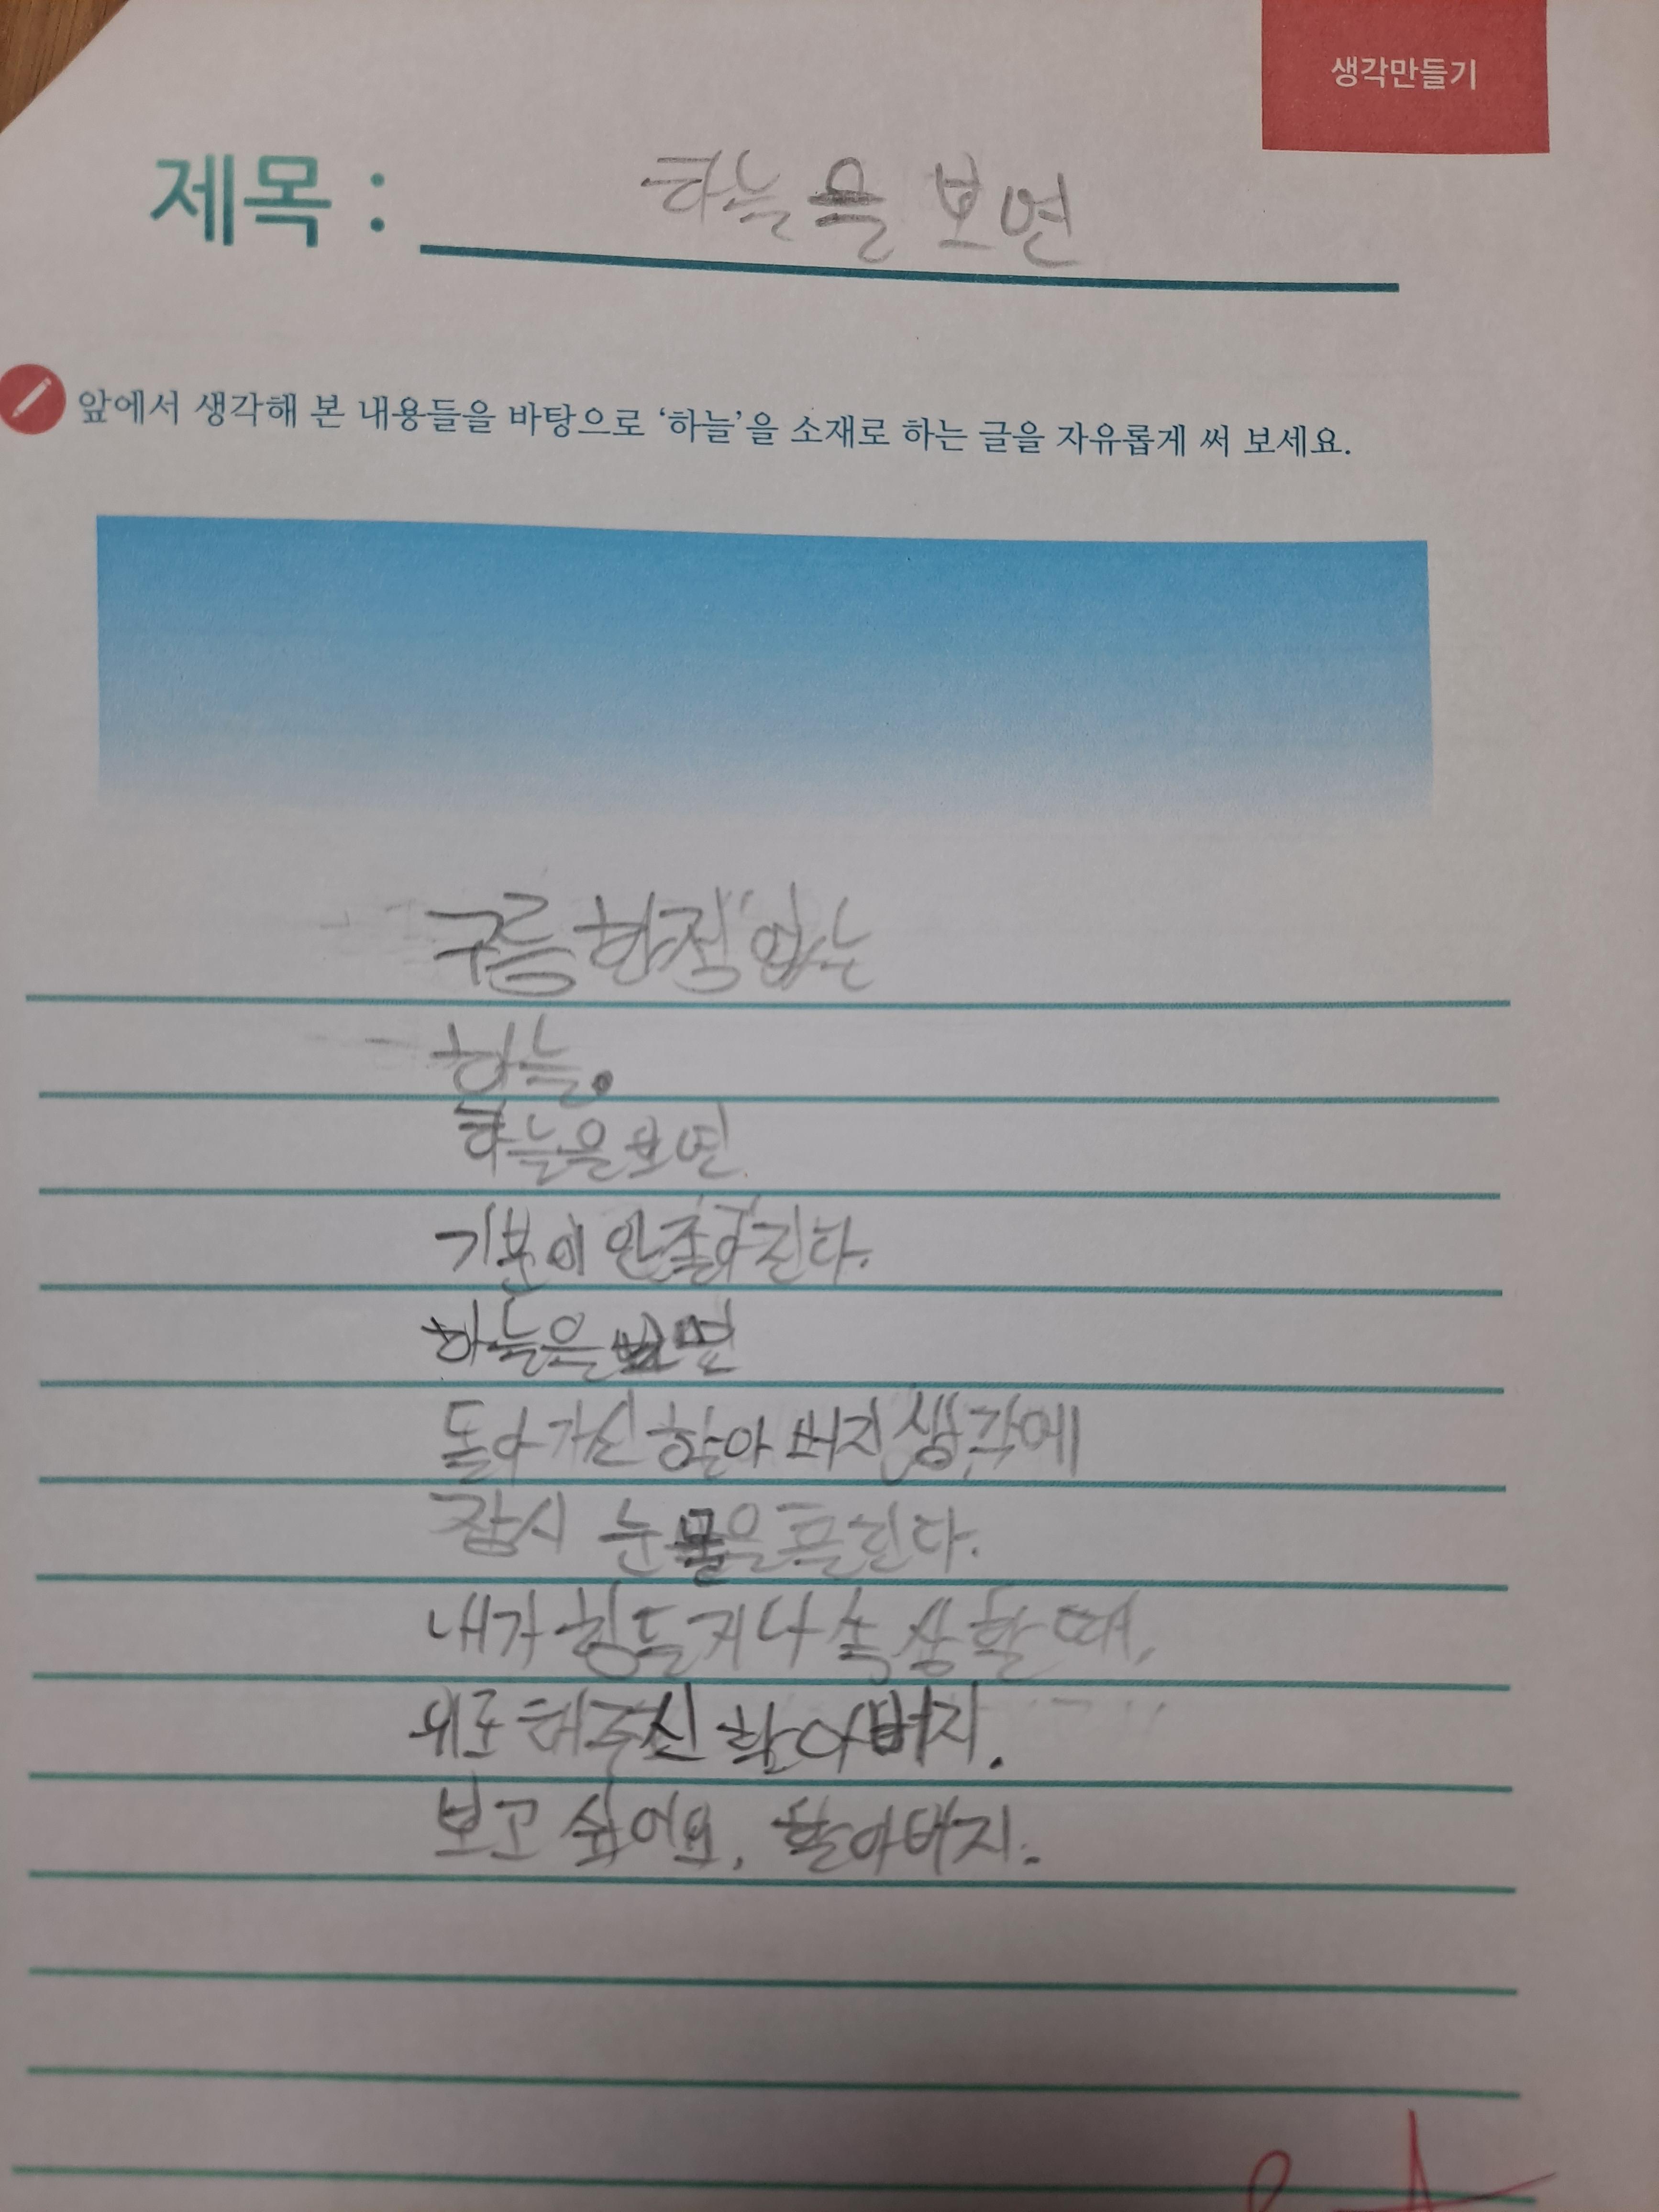 생각만들기
제목 : 하늘을 보면
앞에서 생각해 본 내용들을 바탕으로 ‘하늘’을 소재로 하는 글을 자유롭게 써 보세요.
구름 한점 없는
하늘.
하늘을 보면
기분이 안 좋아진다.
하늘을 보면
돌아가신 할아버지 생각에
잠시 눈물을 흘린다.
내가 힘들거나 속상할 때,
위로해주신 할아버지.
보고 싶어요, 할아버지.